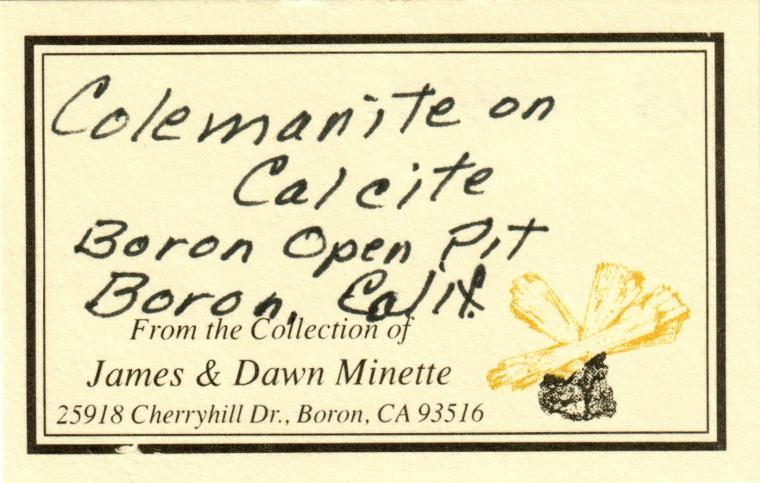 Colemanite on
Calcite
Boron Open Pit
Boron, Calif.
From the Collection of
James & Dawn Minette
25918 Cherryhill Dr., Boron, CA 93516